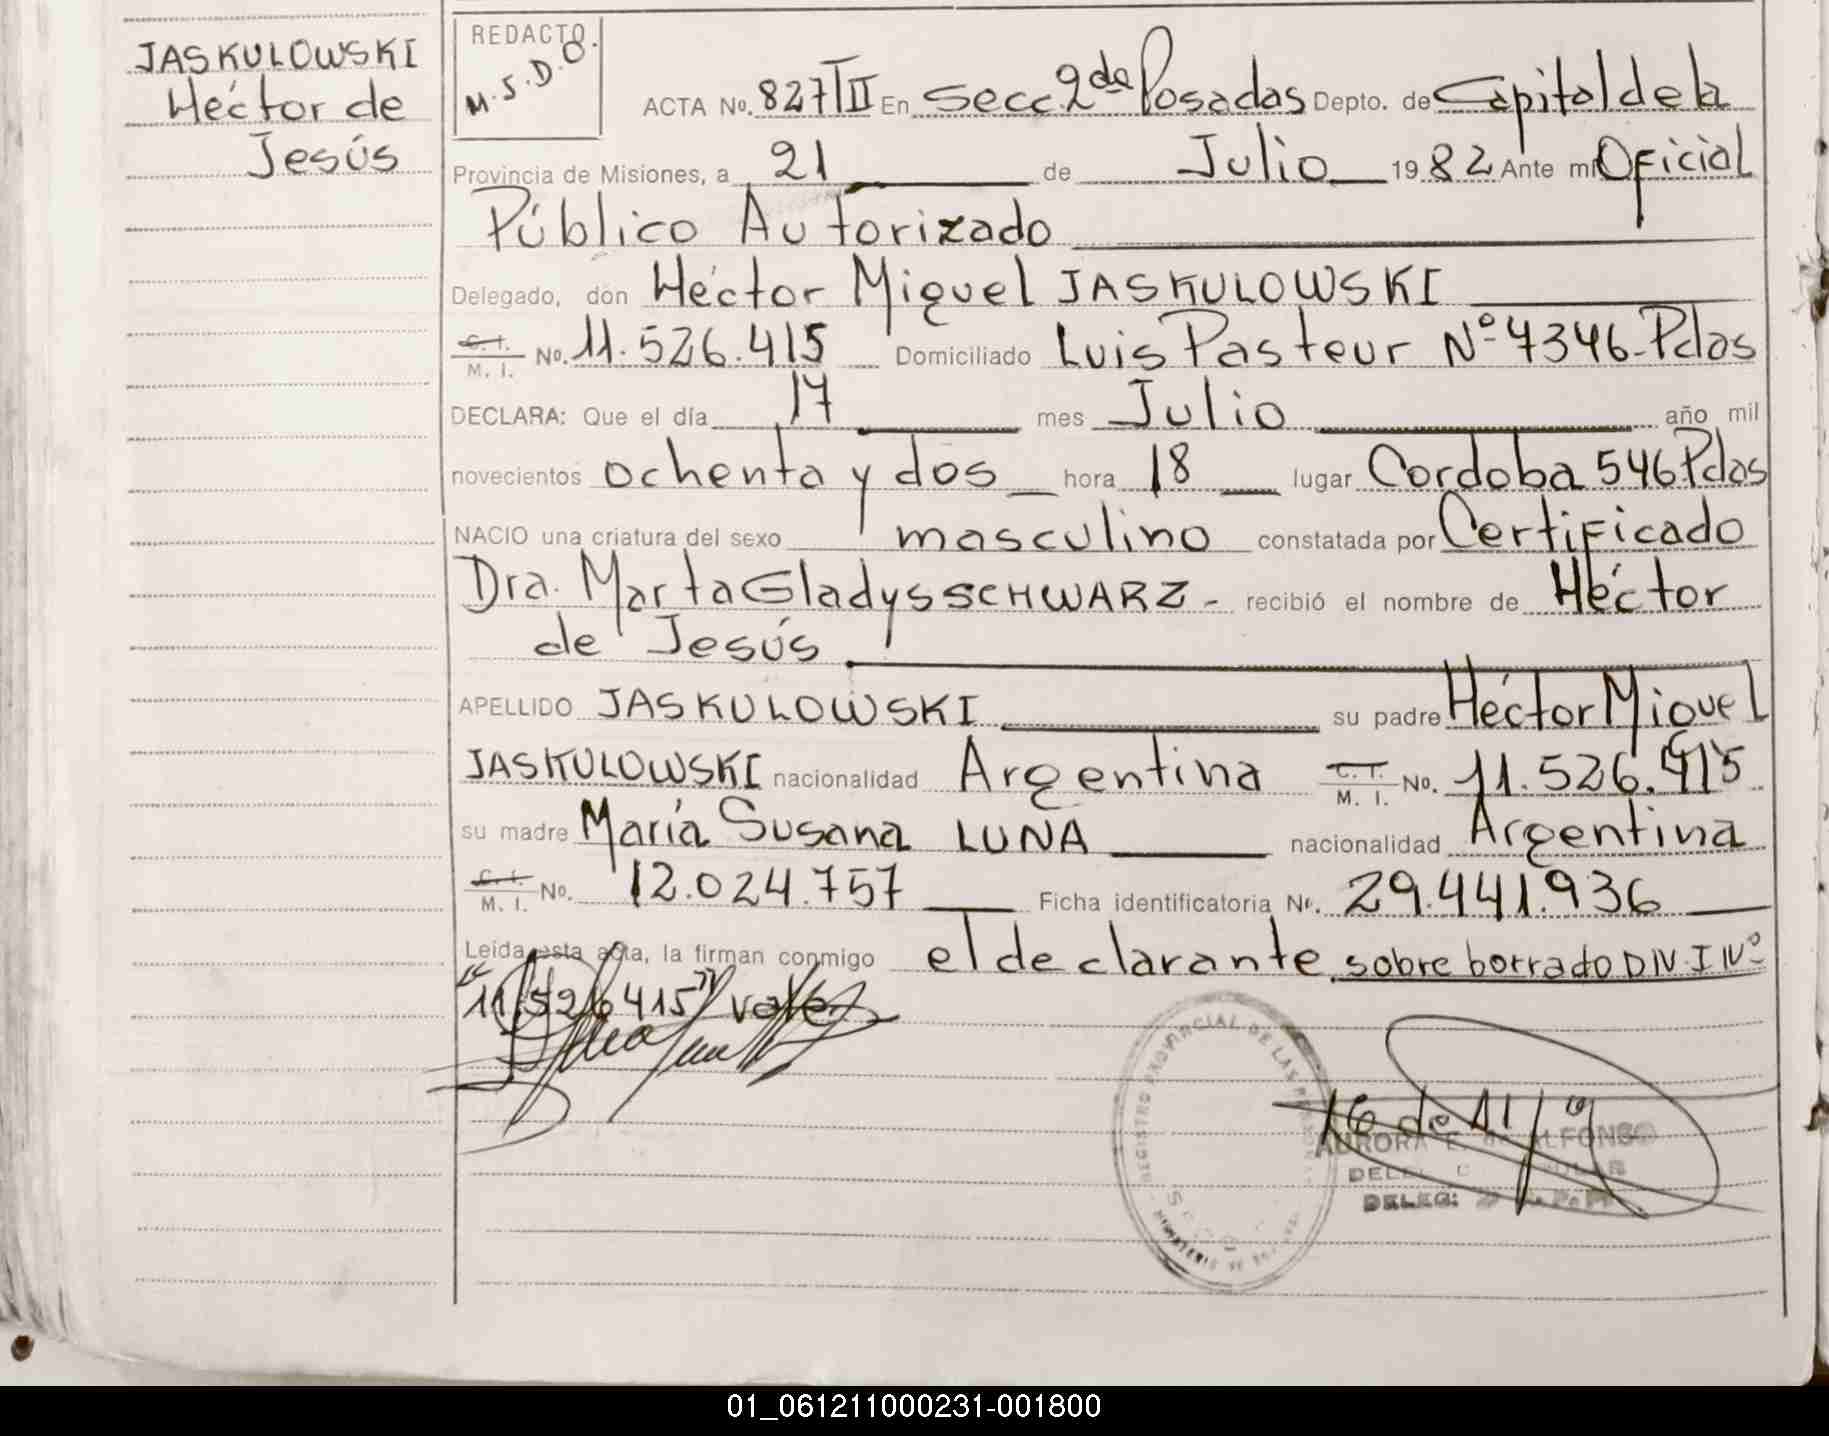 JASKULOWSKI
Héctor de
Jesús
REDACTO.
M.S.D.O
ACTA No. 827/II En Secc. 2da Posadas Depto. de Capital de la
Provincia de Misiones, a 21 de Julio 1982 Ante mi Oficial
Público Autorizado
Delegado, don Héctor Miguel JASKULOWSKI
C. I. M. I. No. 11.526.415 Domiciliado Luis Pasteur Nº 4346-Pdas
DECLARA: Que el día 17 mes Julio año mil
novecientos ochenta y dos hora 18 lugar Cordoba 546 Pdas
NACIO una criatura del sexo masculino constatada por Certificado
Dra. Marta Gladys SCHWARZ - recibió el nombre de Héctor
de Jesús
APELLIDO JASKULOWSKI su padre Héctor Miguel
JASKULOWSKI nacionalidad Argentina C. I. M. I. No. 11.526.415
su madre María Susana LUNA nacionalidad Argentina
C. I. M. I. No. 12.024.757 Ficha identificatoria Nr. 29.441.936
Leída esta acta, la firman conmigo el declarante. sobre borrado DIV. I Nº
"11.526415" vale
REGISTRO PROVINCIAL DE LAS PERSONAS
AURORA E. de ALFONSO
DELEG:
01_061211000231-001800